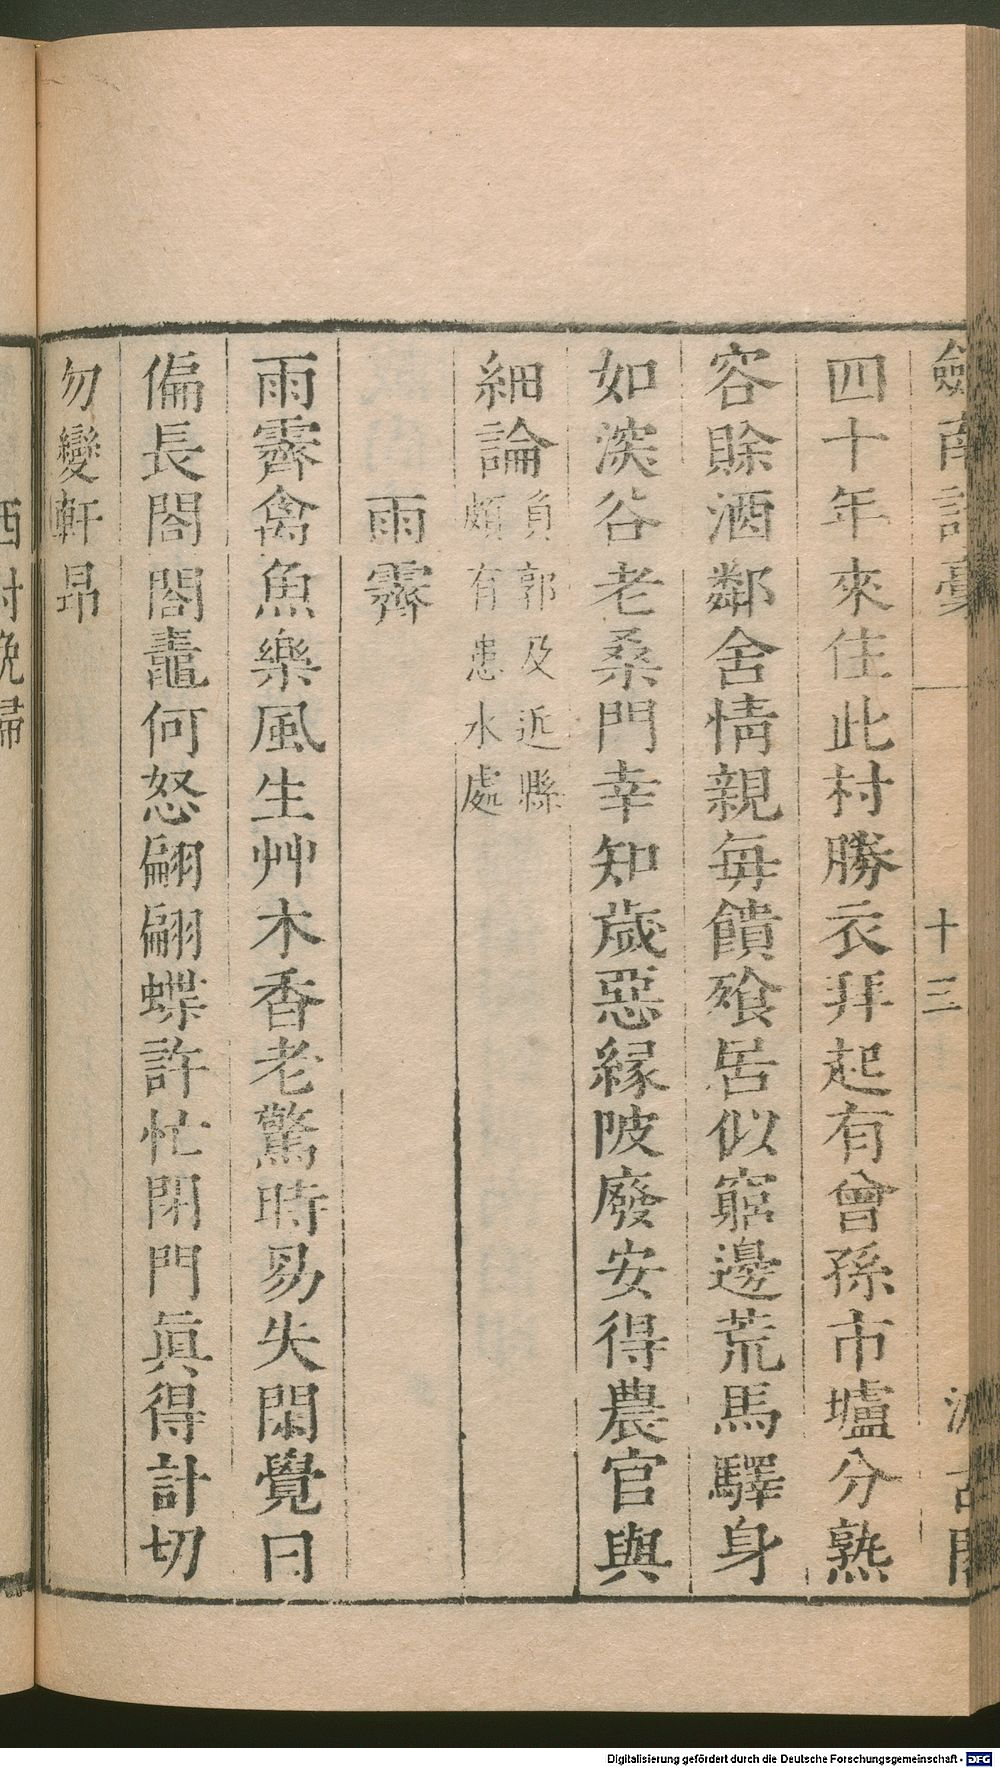 劒南詩藁
十三
四十年來住此村勝衣拜起有曾孫市壚分熟
容賒酒鄰舍情親每饋飱居似窮邊荒馬驛身
如深谷老桑門幸知歲惡緣陂廢安得農官與
細論
負郭及近縣
頗有患水處
雨霽
雨霽禽魚樂風生艸木香老驚時易失閑覺日
偏長閤閤鼃何怒翩翩蝶許忙閉門眞得計切
勿變軒昂
西村晚歸
Digitalisierung gefördert durch die Deutsche Forschungsgemeinschaft - DFG